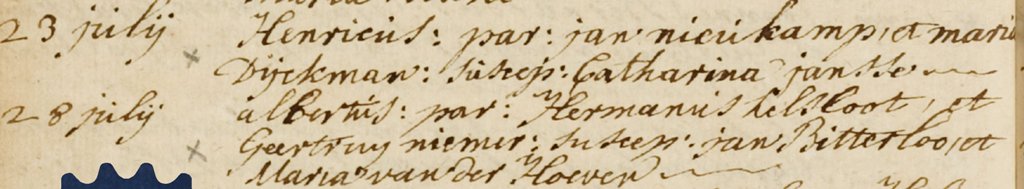 23 julij Henricus: par: jan nieukamp, et maria
Dijckman: suscep: Catharina jansse
28 julij albertus: par: Hermanus helsloot, et
Geertruy niemer: suscep: jan Bitterloo, et
Maria van der Hoeven